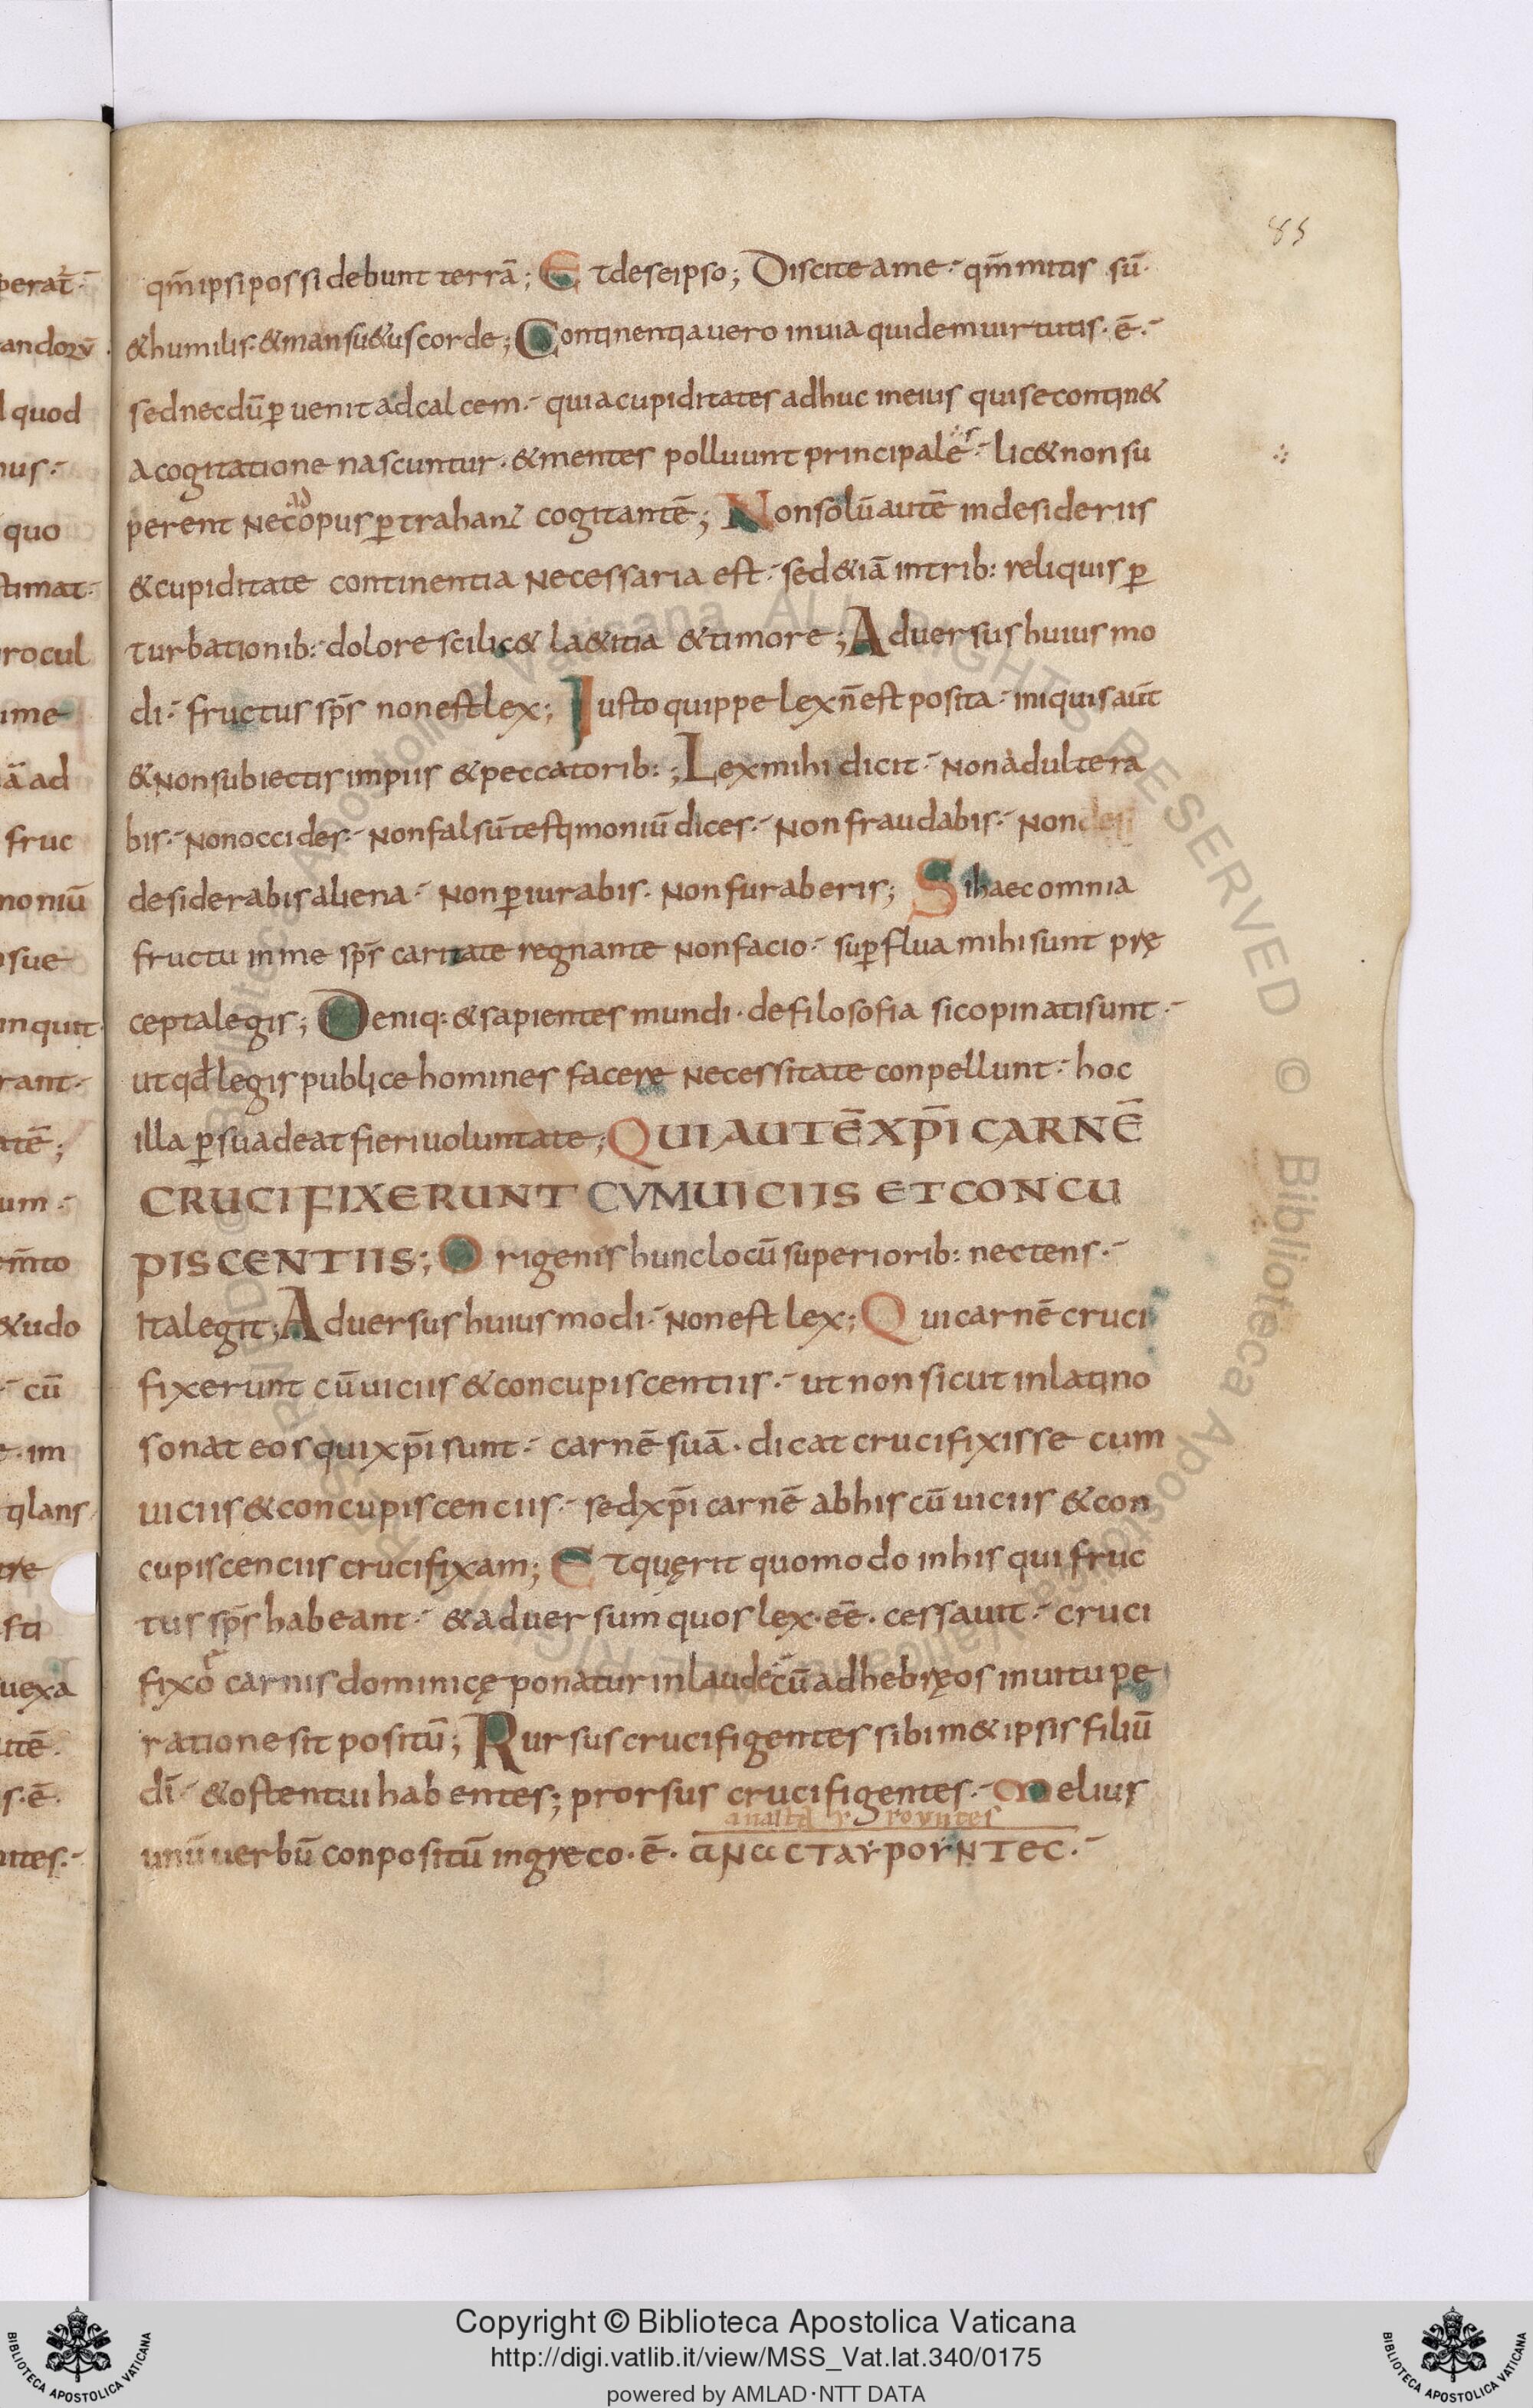 85
qm̄ ipsi possidebunt terrā; Et de seipso; Discite a me·- qm̄ mitis sū·
& humilis·- & mansu&us corde; Continentia uero in uia quidem uirtutis· ē·-
sed necdū ꝑuenit ad calcem·- quia cupiditates adhuc in eius qui se contin&
a cogitatione nascuntur· & mentes polluunt principalē·- lic& non su
perent nec opus ꝑtrahant cogitantē; Non solū autē in desideriis
& cupiditate continentia necessaria est·- sed &iā in trib: reliquis ꝑ
turbationib:·- dolore scilic& la&itia & timore; Aduersus huiusmo
di·- fructus sp̄s non est lex; Iusto quippe lex n̄ est posita·- iniquis aut̄
& non subiectis impiis & peccatorib:·; Lex mihi dicit·- non adultera
bis·- non occides·- non falsū testimoniū dices·- non fraudabis·- non
desiderabis aliena·- non ꝑiurabis· non furaberis; Si haec omnia
fructu in me sp̄s caritate regnante non facio·- suꝑflua mihi sunt prę
cepta legis; Deniq: & sapientes mundi· de filosofia sic opinati sunt·-
ut qd̄ legis publice homines facere necessitate conpellunt·- hoc
illa ꝑsuadeat fieri uoluntate; QUI AUTĒ XP̄I CARNĒ
CRUCIFIXERUNT CVM UICIIS ET CONCU
PISCENTIIS; Origenis hunc locū superiorib: nectens·-
Ita legit; Aduersus huiusmodi·- non est lex; Qui carnē cruci
fixerunt cū uiciis & concupiscentiis·- ut non sicut in latino
sonat eos qui xp̄i sunt·- carnē suā· dicat crucifixisse cum
uiciis & concupiscenciis·- sed xp̄i carnē ab his cū uiciis & con
cupiscenciis crucifixam; Et quęrit quomodo in his qui fruc
tus sp̄s habeant·- & aduersum quos lex· eē· cessauit·- cruci
fixo carnis dominicę ponatur in laude cū ad hebręos in uitupe
ratione sit positū; Rursus crucifigentes sibim& ipsis filiū
dī·- & ostentui habentes; prorsus crucifigentes·- Melius
unū uerbū conpositū in greco· ē· ΑΝΑCΤΑΥΡΟΥΝΤΕC·-
Copyright © Biblioteca Apostolica Vaticana
http://digi.vatlib.it/view/MSS_Vat.lat.340/0175
powered by AMLAD·NTT DATA